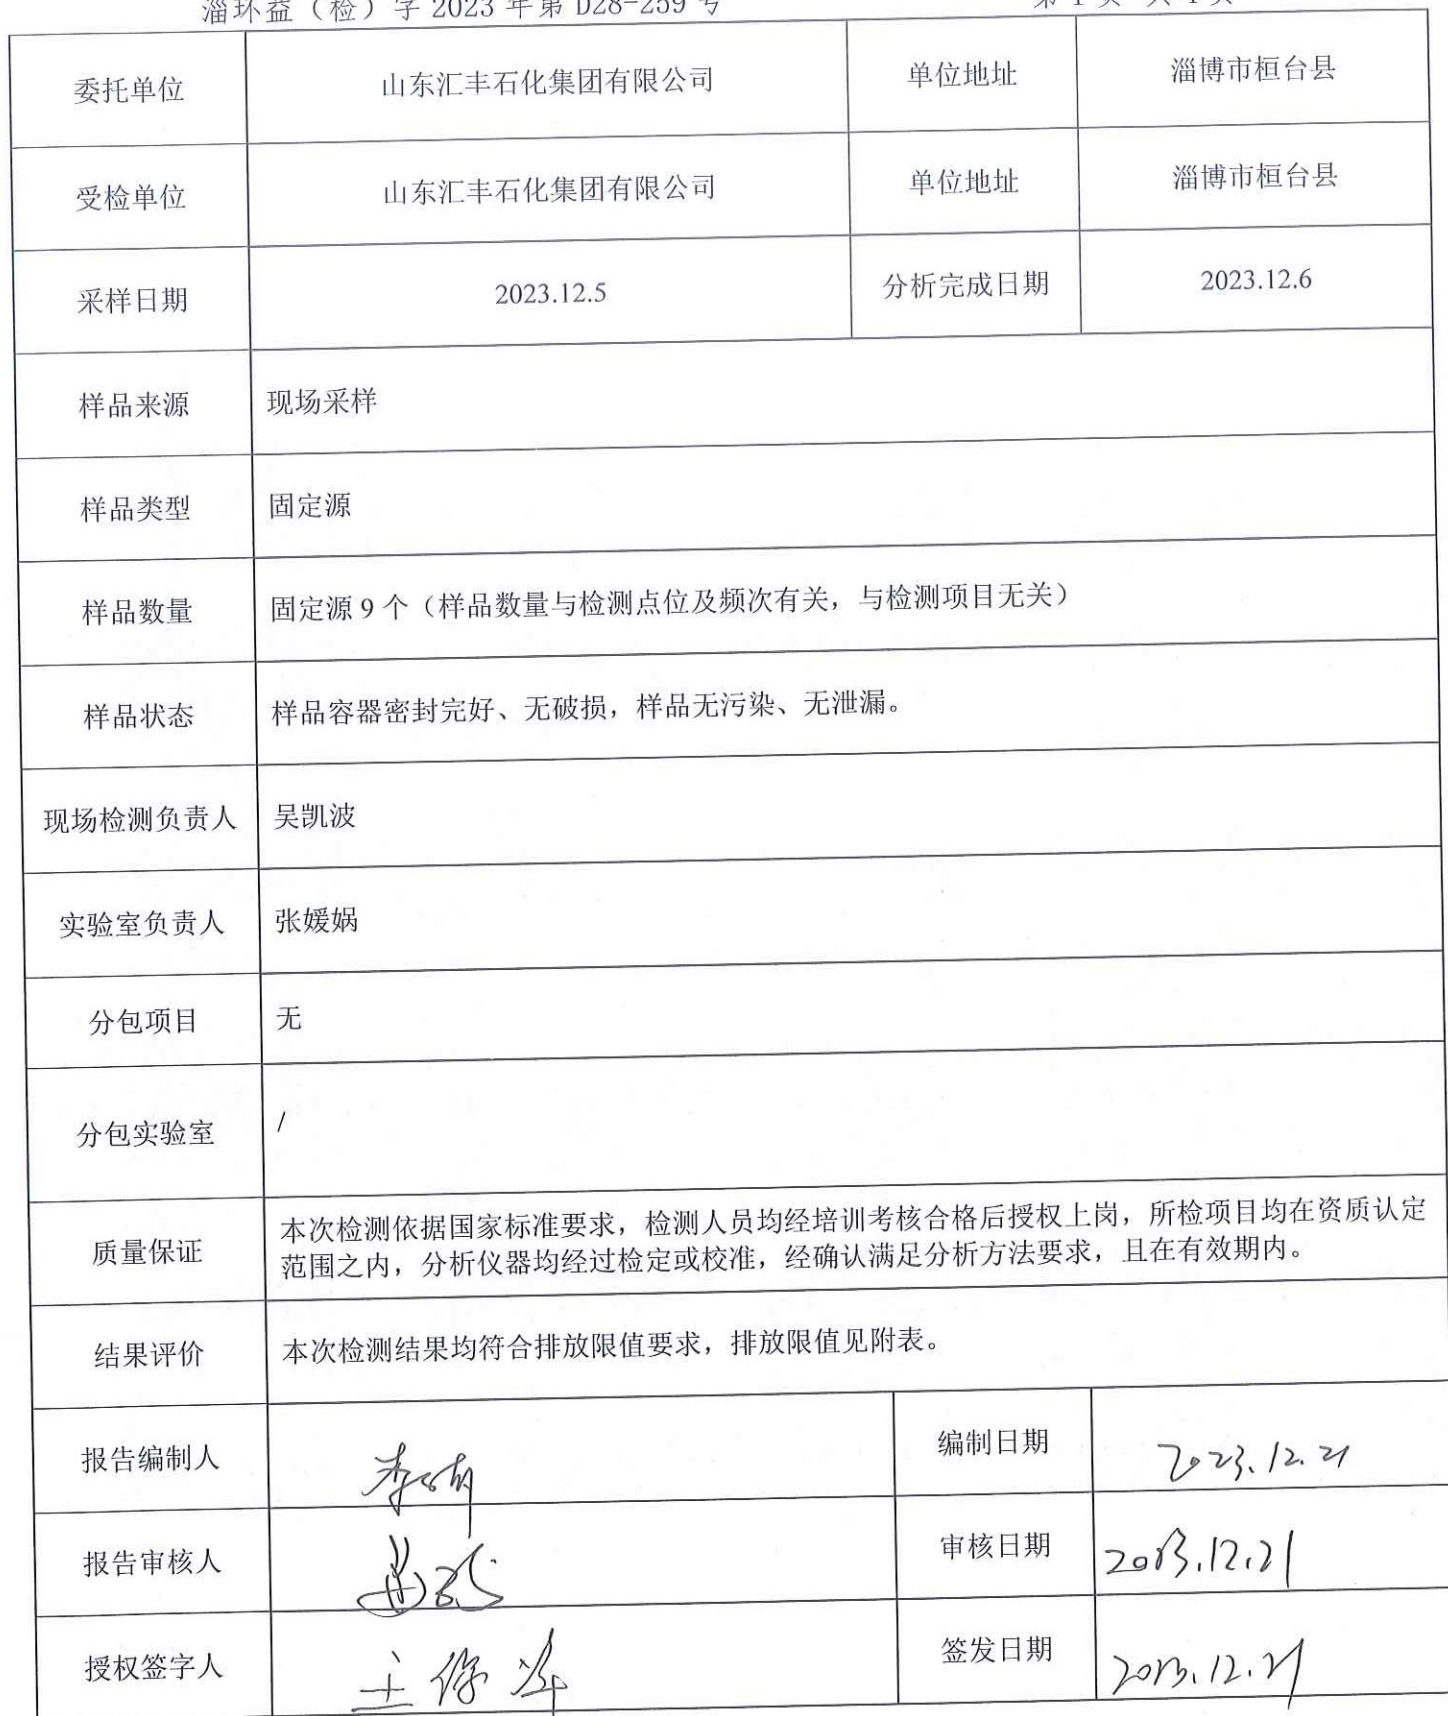 淄环益（检）字 2023 年第 D28-259 号
委托单位 山东汇丰石化集团有限公司 单位地址 淄博市桓台县
受检单位 山东汇丰石化集团有限公司 单位地址 淄博市桓台县
采样日期 2023.12.5 分析完成日期 2023.12.6
样品来源 现场采样
样品类型 固定源
样品数量 固定源 9 个（样品数量与检测点位及频次有关，与检测项目无关）
样品状态 样品容器密封完好、无破损，样品无污染、无泄漏。
现场检测负责人 吴凯波
实验室负责人 张媛娲
分包项目 无
分包实验室 /
质量保证 本次检测依据国家标准要求，检测人员均经培训考核合格后授权上岗，所检项目均在资质认定
范围之内，分析仪器均经过检定或校准，经确认满足分析方法要求，且在有效期内。
结果评价 本次检测结果均符合排放限值要求，排放限值见附表。
报告编制人 编制日期 2023.12.21
报告审核人 审核日期 2023.12.21
授权签字人 签发日期 2023.12.21